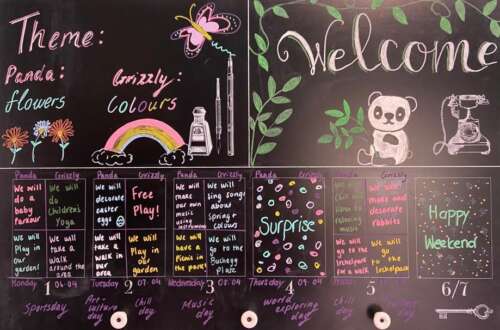 Theme:
Welcome
Panda:
Grizzly:
flowers
Colours
Panda Grizzly Panda Grizzly Panda Grizzly Panda Grizzly Panda Grizzly
We will
do a
baby
parkour
We will
do
Children's
Yoga
We will
decorate
easter
eggs
Free
Play!
We will
make our
music
using
We will
sing songs
about
Spring +
colours
Surprise
We will
We will
make and
decorate
rabbits
Happy
Weekend
We will
Play in
our
garden!
We will
take a
walk
around the
area
We will
take a
walk in
our
area
We will
Play in
our
garden
We will
have a
Picnic in
the park!
We will
go to
the
Buchegg
Place
We will
go to the
Lochelpark
for a walk
We will
go to
the
Lochelpark
1 2 3 4 5 6/7
Monday
Wednesday
Thursday
Sportsday
Art-
culture
day
Chill
day
Music
day
World
exploring
day
chill
day
day